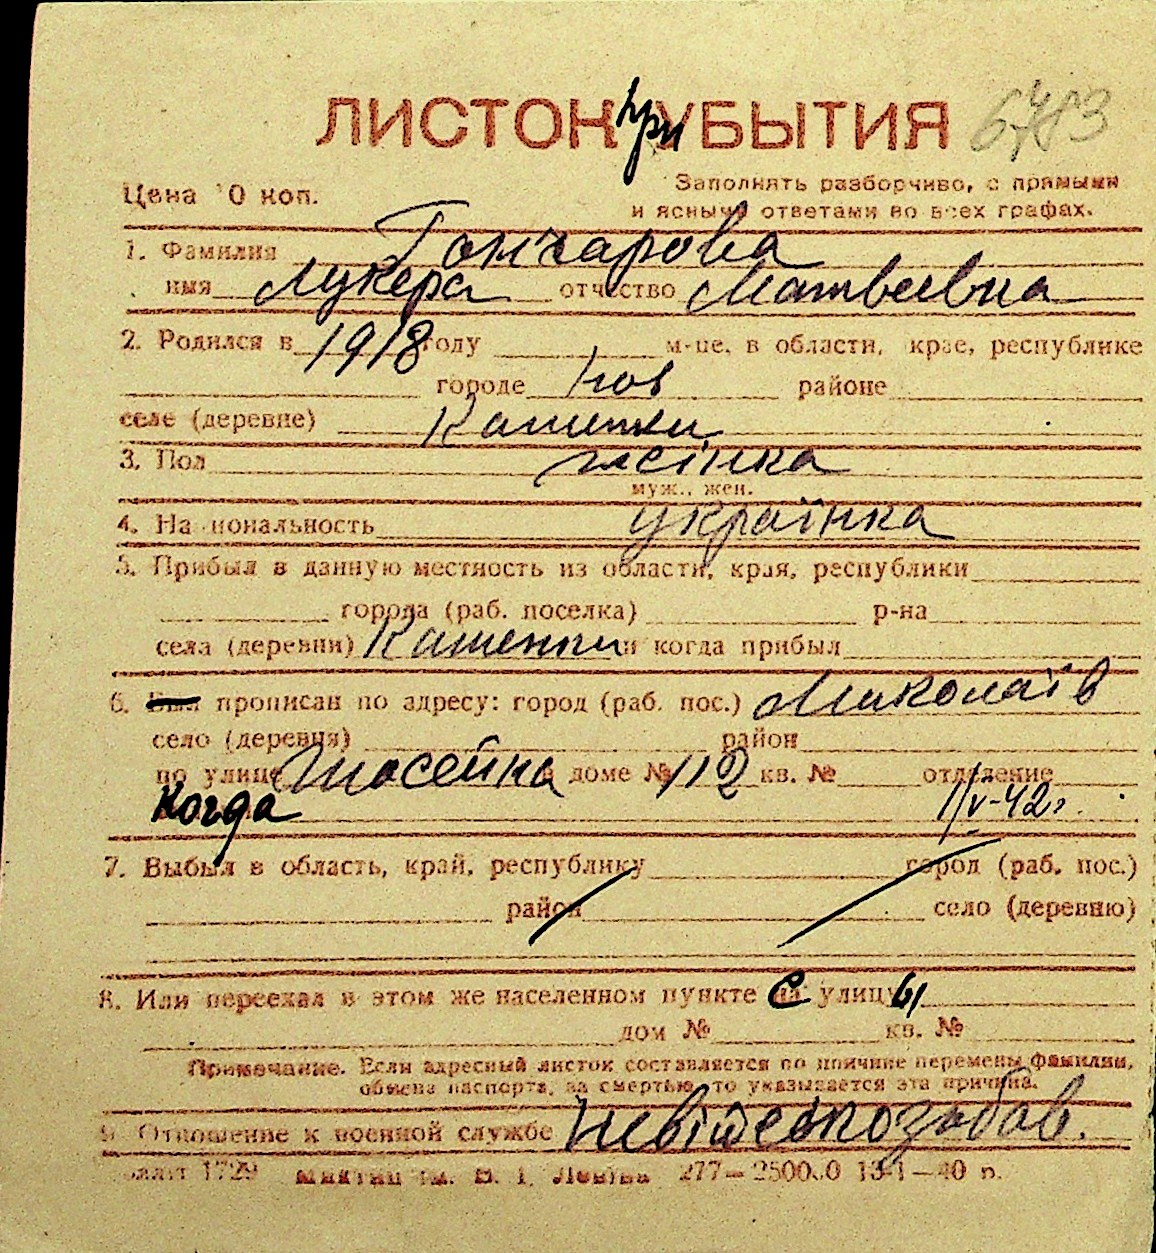 ЛИСТОК при УБЫТИЯ 6783
Цена 10 коп. Заполнять разборчиво, с прямыми
и ясными ответами во всех графах.
1. Фамилия Гончарова
имя Лукера отчество Матвеевна
2. Родился в 1918 году м-це, в области, крае, республике
городе районе
селе (деревне)
3. Пол жінка
муж., жен.
4. Национальность українка
5. Прибыл в данную местность из области, края, республики
города (раб. поселка) р-на
села (деревни) и когда прибыл
6. Был прописан по адресу: город (раб. пос.) Миколаїв
село (деревня) район
по улице в доме № 112 кв. № отделение
когда 1/V-42г.
7. Выбыл в область, край, республику город (раб. пос.)
район село (деревню)
8. Или переехал в этом же населенном пункте с улицы
дом № кв. №
Примечание. Если адресный листок составляется по причине перемены фамилии,
обмена паспорта, за смертью, то указывается эта причина.
9. Отношение к военной службе
1729 277—250000 13-1—40 р.